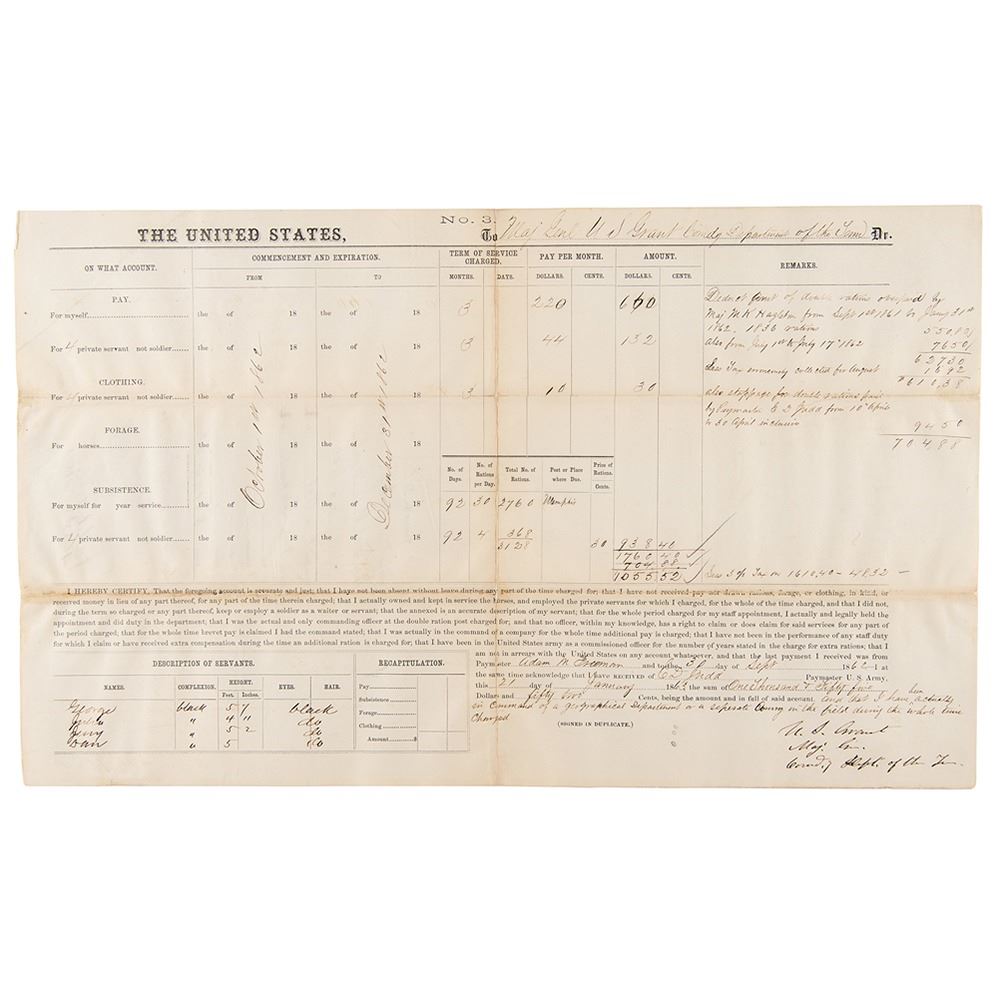 No. 3.
THE UNITED STATES, To Maj Genl U S Grant Comdg Department of the Tenn Dr.
ON WHAT ACCOUNT. COMMENCEMENT AND EXPIRATION. TERM OF SERVICE CHARGED. PAY PER MONTH. AMOUNT. REMARKS.
FROM TO MONTHS. DAYS. DOLLARS. CENTS. DOLLARS. CENTS.
PAY.
For myself the of 18 the of 18 3 220 660
For 4 private servant not soldier the of 18 the of 18 3 44 132
CLOTHING.
For 4 private servant not soldier the of 18 the of 18 3 10 30
FORAGE.
For horses the of 18 the of 18
October 1st 1862
December 31st 1862
No. of Days. No. of Rations per Day. Total No. of Rations. Post or Place where Due. Price of Rations. Cents.
SUBSISTENCE.
For myself for year service the of 18 the of 18 92 30 2760 Memphis
For 4 private servant not soldier the of 18 the of 18 92 4 368
3128 30 938 40
1760 40
704 88
1055 52
Deduct amt of double rations overpaid by
Maj M. K. from Sept 1st 1861 to Jany 31st
1862. 1836 rations 550,80
also from July 1st to July 17th 1862 76,50
627 30
Less Tax collected for August 16 92
$610,38
also stoppage for double rations paid
by Paymaster E D Judd from 10th April
to 30 April inclusive 94 50
704,88
Less 3% Tax on 1610,40 - 48,32 -
I HEREBY CERTIFY, That the foregoing account is separate and just; that I have not been absent without leave during any part of the time charged for; that I have not received pay nor drawn rations, forage, or clothing, in kind, or
received money in lieu of any part thereof, for any part of the time therein charged; that I actually owned and kept in service the horses, and employed the private servants for which I charged, for the whole of the time charged, and that I did not,
during the term so charged or any part thereof, keep or employ a soldier as a waiter or servant; that the annexed is an accurate description of my servant; that for the whole period charged for my staff appointment, I actually and legally held the
appointment and did duty in the department; that I was the actual and only commanding officer at the double ration post charged for; and that no officer, within my knowledge, has a right to claim or does claim for said services for any part of
the period charged; that for the whole time brevet pay is claimed I had the command stated; that I was actually in the command of a company for the whole time additional pay is charged; that I have not been in the performance of any staff duty
for which I claim or have received extra compensation during the time an additional ration is charged for; that I have been in the United States army as a commissioned officer for the number of years stated in the charge for extra rations; that I
am not in arrears with the United States on any account whatsoever, and that the last payment I received was from
Paymaster Adam M. and to the 30 day of Sept 1862 I at
the same time acknowledge that I have RECEIVED of E D Judd Paymaster U. S. Army,
this 21 day of January 1863 the sum of One Thousand & fifty five
Dollars and fifty two Cents, being the amount and in full of said account and that I have been actually
in Command of a geographical Department or a separate Army in the field during the whole time
Charged
(SIGNED IN DUPLICATE.)
DESCRIPTION OF SERVANTS. RECAPITULATION.
NAMES. COMPLEXION. HEIGHT. Feet. Inches. EYES. HAIR.
George black 5 7 black
" 4 11 do
" 5 2 do
Dan " 5 do
Pay
Subsistence
Forage
Clothing
Amount $
U. S. Grant
Maj. Gn.
Comd'g Dept. of the Tn.